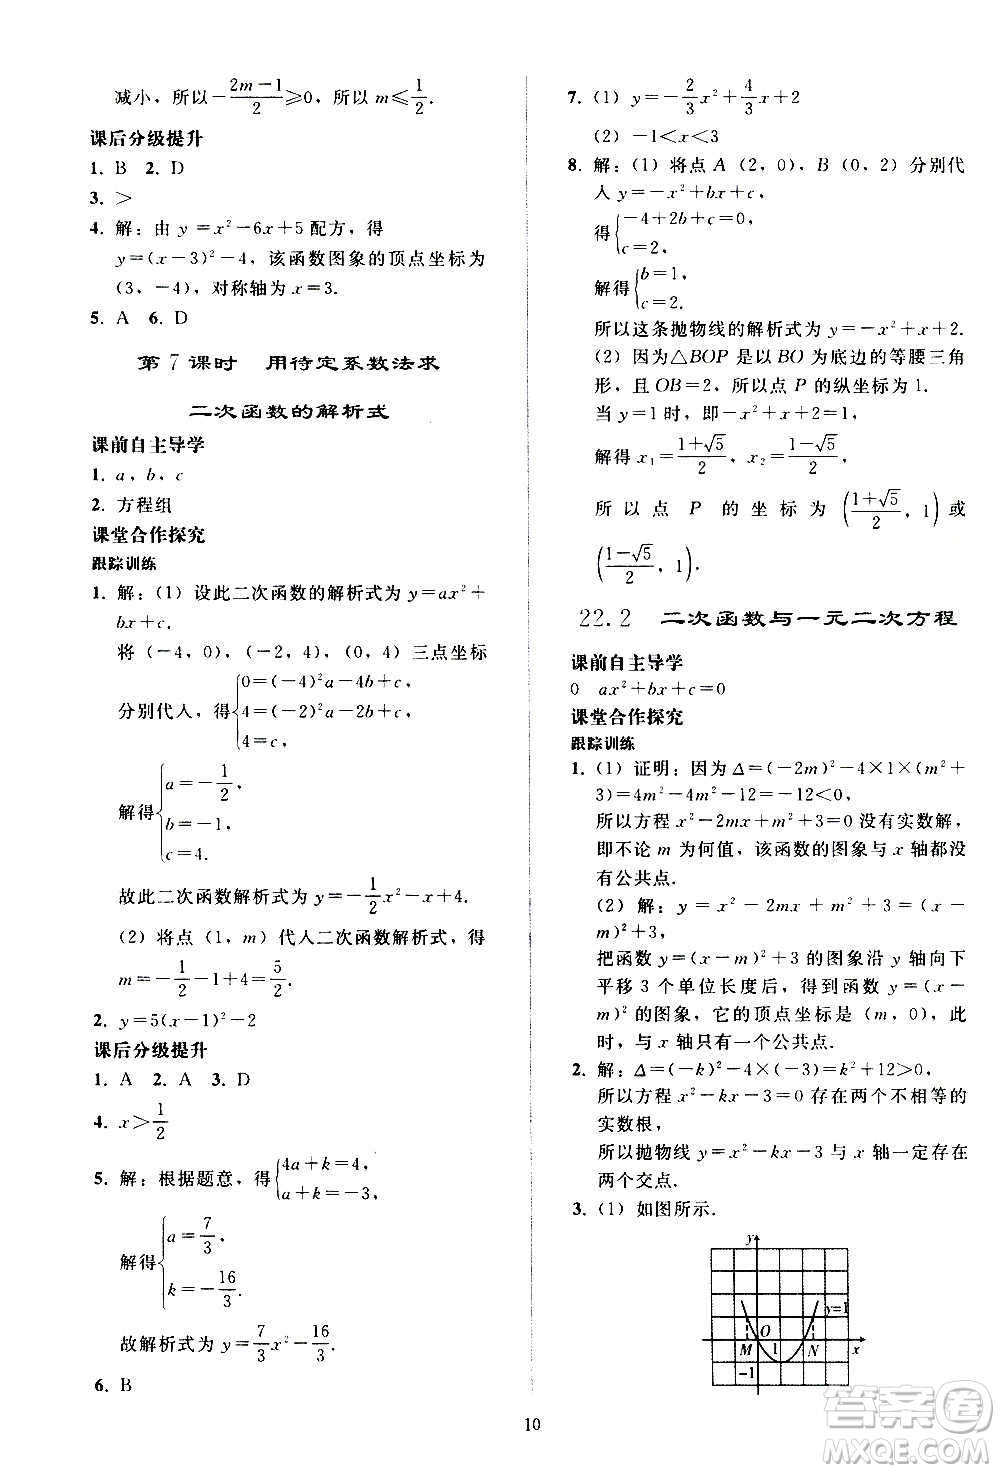 减小,所以-\frac{2m-1}{2}≥0,所以 m≤\frac{1}{2}.
课后分级提升
1. B  2. D
3. >
4. 解:由 y=x²-6x+5 配方,得
y=(x-3)²-4,该函数图象的顶点坐标为
(3,-4),对称轴为 x=3.
5. A  6. D
第 7 课时  用待定系数法求
二次函数的解析式
课前自主导学
1. a,b,c
2. 方程组
课堂合作探究
跟踪训练
1. 解:(1)设此二次函数的解析式为 y=ax²+
bx+c.
将(-4,0),(-2,4),(0,4)三点坐标
分别代人,得{0=(-4)²a-4b+c,
4=(-2)²a-2b+c,
4=c,
解得{a=-\frac{1}{2},
b=-1,
c=4.
故此二次函数解析式为 y=-\frac{1}{2}x²-x+4.
(2)将点(1,m)代人二次函数解析式,得
m=-\frac{1}{2}-1+4=\frac{5}{2}
2. y=5(x-1)²-2
课后分级提升
1. A  2. A  3. D
4. x>\frac{1}{2}
5. 解:根据题意,得{4a+k=4,
a+k=-3,
解得{a=\frac{7}{3},
k=-\frac{16}{3}.
故解析式为 y=\frac{7}{3}x²-\frac{16}{3}.
6. B
7. (1) y=-\frac{2}{3}x²+\frac{4}{3}x+2
(2) -1<x<3
8. 解:(1)将点 A(2,0),B(0,2)分别代
人 y=-x²+bx+c,
得{-4+2b+c=0,
c=2,
解得{b=1,
c=2.
所以这条抛物线的解析式为 y=-x²+x+2.
(2)因为△BOP 是以 BO 为底边的等腰三角
形,且 OB=2,所以点 P 的纵坐标为 1.
当 y=1 时,即-x²+x+2=1,
解得 x₁=\frac{1+√5}{2},x₂=\frac{1-√5}{2},
所以点 P 的坐标为(\frac{1+√5}{2},1)或
(\frac{1-√5}{2},1).
22.2  二次函数与一元二次方程
课前自主导学
0  ax²+bx+c=0
课堂合作探究
跟踪训练
1. (1)证明:因为 Δ=(-2m)²-4×1×(m²+
3)=4m²-4m²-12=-12<0,
所以方程 x²-2mx+m²+3=0 没有实数解,
即不论 m 为何值,该函数的图象与 x 轴都没
有公共点.
(2)解:y=x²-2mx+m²+3=(x-
m)²+3,
把函数 y=(x-m)²+3 的图象沿 y 轴向下
平移 3 个单位长度后,得到函数 y=(x-
m)²的图象,它的顶点坐标是(m,0),此
时,与 x 轴只有一个公共点.
2. 解:Δ=(-k)²-4×(-3)=k²+12>0,
所以方程 x²-kx-3=0 存在两个不相等的
实数根,
所以抛物线 y=x²-kx-3 与 x 轴一定存在
两个交点.
3. (1)如图所示.
y
y=1
O
M 1 N x
-1
10
答案圈
MXQE.COM